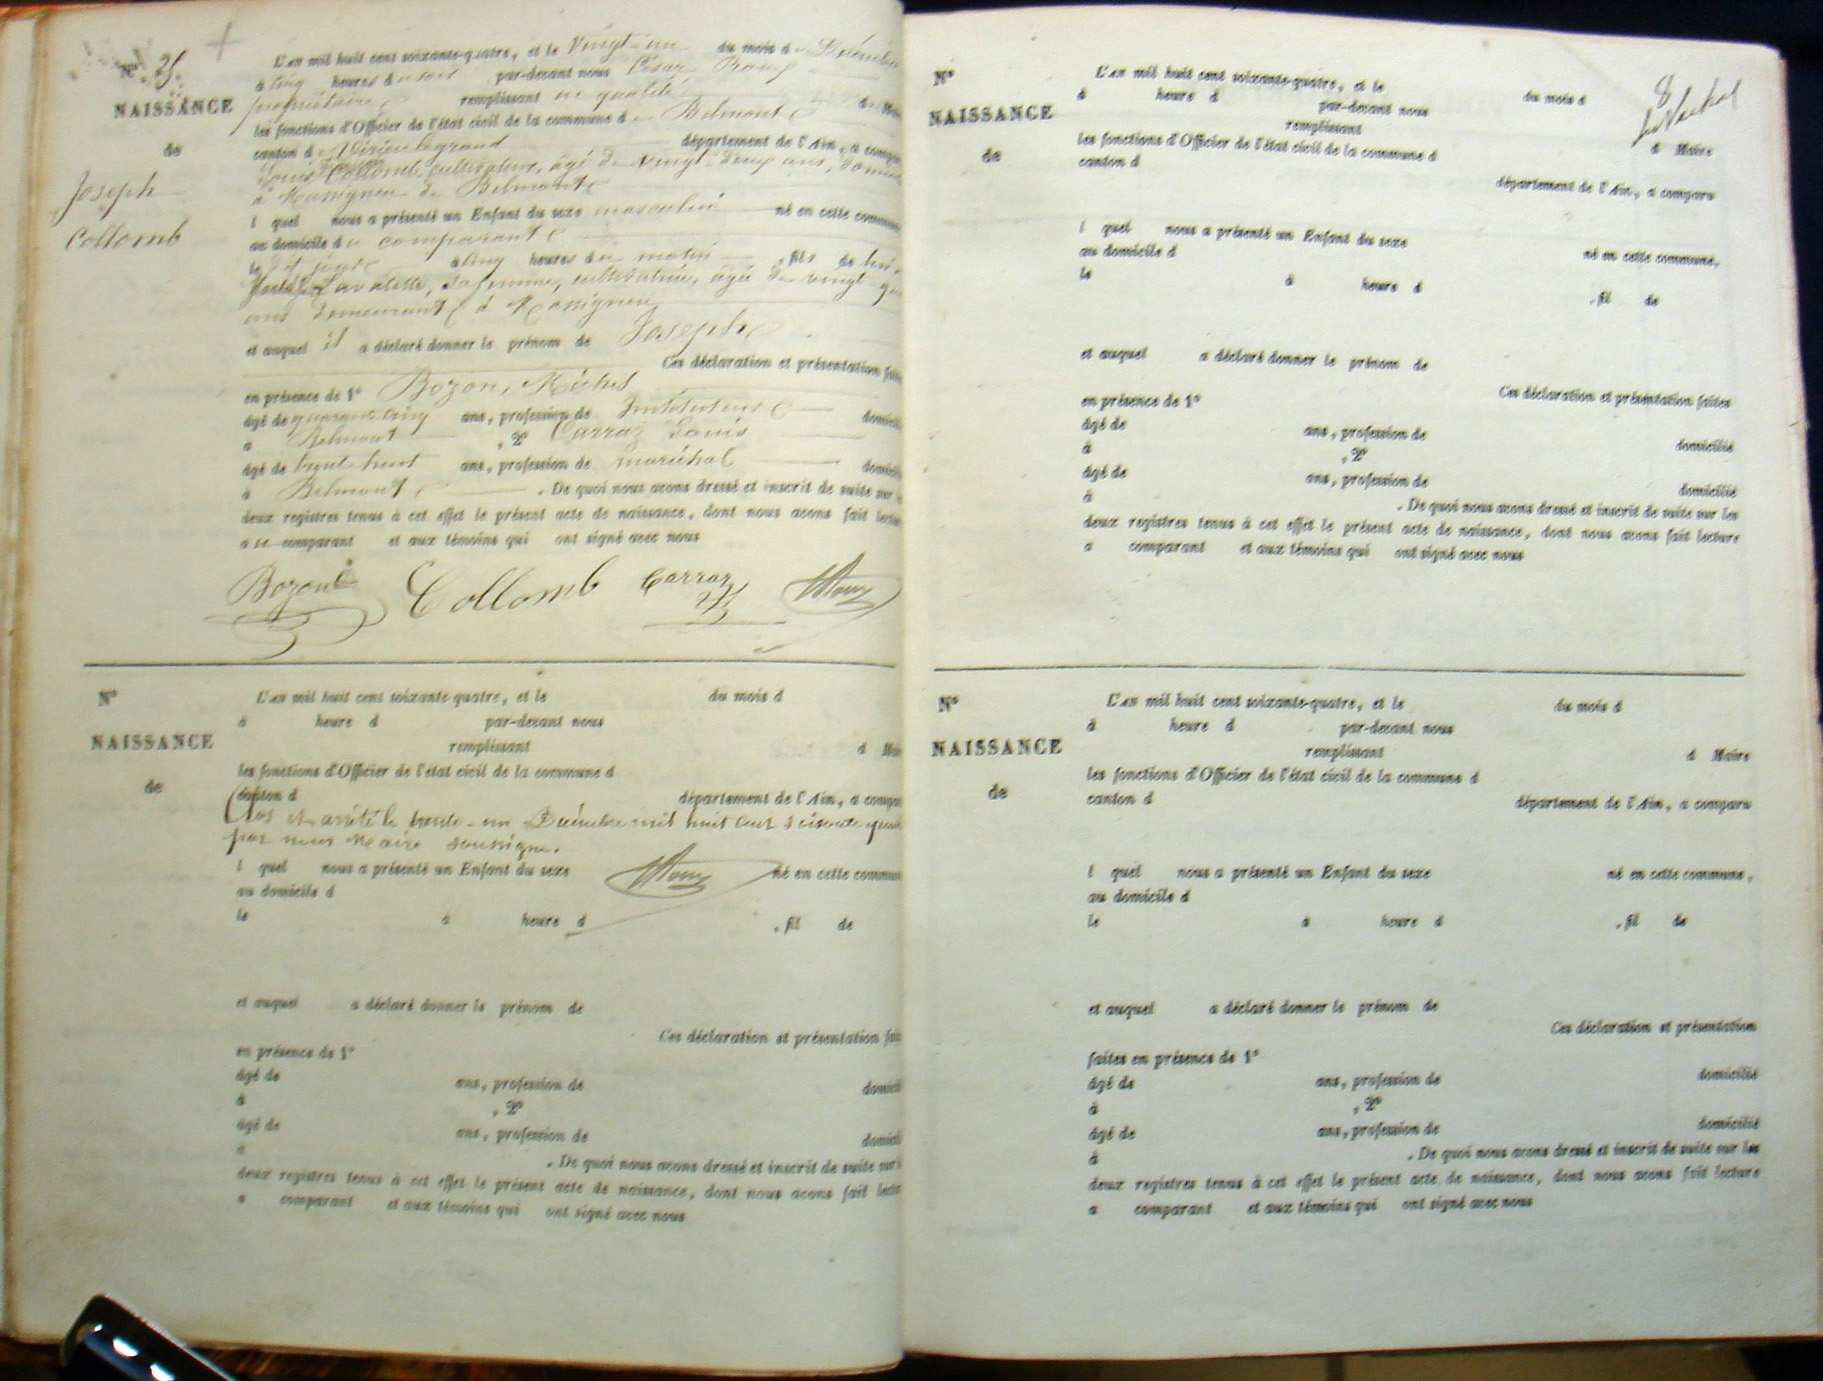 N° 25
NAISSANCE
de
Joseph
Collomb
L'an mil huit cent soixante-quatre, et le vingt-un du mois de Décembre
à cinq heures du soir par-devant nous César
propriétaire remplissant en qualité de Maire
les fonctions d'Officier de l'état civil de la commune de Belmont
canton de Virieu le grand département de l'Ain, a compar
Louis Collomb, cultivateur, âgé de vingt-deux ans, domici
à Massignieu de Belmont
l quel nous a présenté un Enfant du sexe masculin né en cette commune
au domicile du comparant
le dit jour à cinq heures du matin, fils de lui,
sa femme, cultivatrice, âgée de vingt
ans demeurant à Massignieu
et auquel il a déclaré donner le prénom de Joseph
Ces déclaration et présentation fait
en présence de 1° Bozon, Michel
âgé de quarante cinq ans, profession de Instituteur domicili
à Belmont, 2° Carraz Louis
âgé de trente huit ans, profession de maréchal domicili
à Belmont. De quoi nous avons dressé et inscrit de suite sur l
deux registres tenus à cet effet le présent acte de naissance, dont nous avons fait lectur
a u comparant et aux témoins qui ont signé avec nous
Bozon Collomb Carraz
N°
NAISSANCE
de
L'an mil huit cent soixante-quatre, et le du mois d
à heure d par-devant nous
remplissant d Mai
les fonctions d'Officier de l'état civil de la commune d
canton d département de l'Ain, a compar
Clos et arrêté le trente-un Décembre mil huit cent soixante quatre
par nous Maire soussigné.
l quel nous a présenté un Enfant du sexe né en cette commun
au domicile d
le à heure d , fil de
et auquel a déclaré donner le prénom de
Ces déclaration et présentation fait
en présence de 1°
âgé de ans, profession de domicili
à , 2°
âgé de ans, profession de domicili
à . De quoi nous avons dressé et inscrit de suite sur l
deux registres tenus à cet effet le présent acte de naissance, dont nous avons fait lectur
a comparant et aux témoins qui ont signé avec nous
8
N°
NAISSANCE
de
L'an mil huit cent soixante-quatre, et le du mois d
à heure d par-devant nous
remplissant d Maire
les fonctions d'Officier de l'état civil de la commune d
canton d département de l'Ain, a comparu
l quel nous a présenté un Enfant du sexe né en cette commune,
au domicile d
le à heure d , fil de
et auquel a déclaré donner le prénom de
Ces déclaration et présentation faites
en présence de 1°
âgé de ans, profession de domicilié
à , 2°
âgé de ans, profession de domicilié
à . De quoi nous avons dressé et inscrit de suite sur les
deux registres tenus à cet effet le présent acte de naissance, dont nous avons fait lecture
a comparant et aux témoins qui ont signé avec nous
N°
NAISSANCE
de
L'an mil huit cent soixante-quatre, et le du mois d
à heure d par-devant nous
remplissant d Maire
les fonctions d'Officier de l'état civil de la commune d
canton d département de l'Ain, a comparu
l quel nous a présenté un Enfant du sexe né en cette commune,
au domicile d
le à heure d , fil de
et auquel a déclaré donner le prénom de
Ces déclaration et présentation
faites en présence de 1°
âgé de ans, profession de domicilié
à , 2°
âgé de ans, profession de domicilié
à . De quoi nous avons dressé et inscrit de suite sur les
deux registres tenus à cet effet le présent acte de naissance, dont nous avons fait lecture
a comparant et aux témoins qui ont signé avec nous